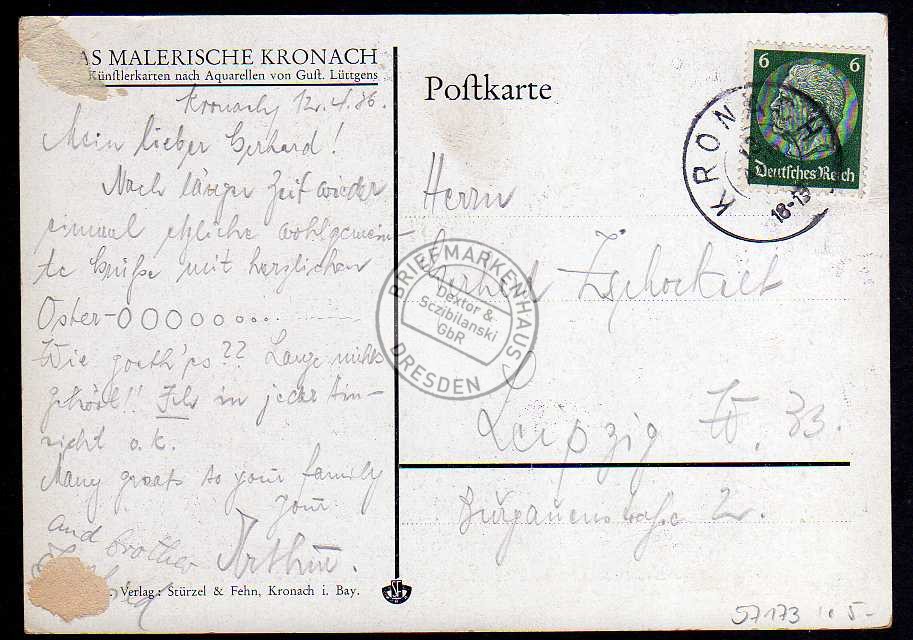 AS MALERISCHE KRONACH
Künstlerkarten nach Aquarellen von Gust. Lüttgens
Kronach, 12.4.36.
Mein lieber Gerhard!
Nach langer Zeit wieder
einmal etliche wohlgemein-
te Grüße mit herzlichen
Oster-OOOOoooo...
Wie goeth'ps?? Lange nichts
gehört!! Ich in jeder Hin-
sicht o.k.
Many greats to your family
Your
and brother Arthur.
Verlag: Stürzel & Fehn, Kronach i. Bay.
Postkarte
6 6
Deutsches Reich
KRONACH
18-19
Herrn
Gerhard
Leipzig W. 33.
BRIEFMARKENHAUS
Dextor &
Sczibilanski
GbR
DRESDEN
57173 5-